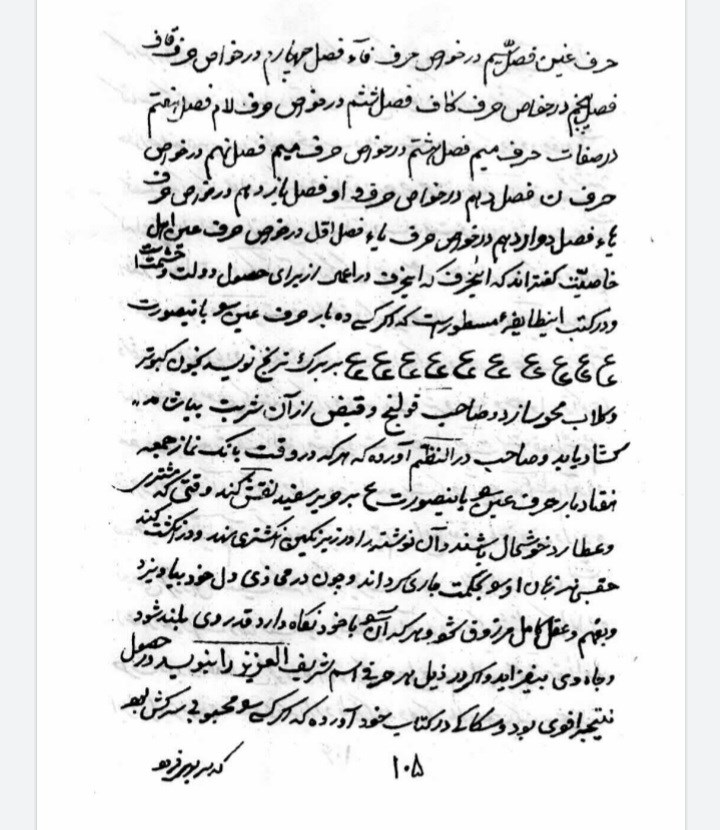 حرف غین فصل سیم در خواص حرف فآء فصل چهارم در خواص حرف قاف
فصل پنجم در خواص حرف کاف فصل ششم در خواص حرف لام فصل هفتم
در صفات حرف میم فصل هشتم در خواص حرف میم فصل نهم در خواص
حرف ن فصل دهم در خواص حرف و او فصل یازدهم در خواص حرف
هاء فصل دوازدهم در خواص حرف یاء فصل اول در خواص حرف عین اهل
خاصیت گفته‌اند که این حرف که اینحرف در اعمال از برای حصول دولت و حشمت است
و در کتب اینطایفه مسطور است که اگر کسی ده بار حرف عین را باینصورت
ع ع ع ع ع ع ع ع ع ع بر برک ترنج نویسد بخون کبوتر
و کلاب محو سازد و صاحب قولنج و قبض از آن شربت بیاشامد
کشاد یابد و صاحب در النظم آورده که هر که در وقت بانک نماز جمعه
هفتاد بار حرف عین را باینصورت ع بر حریر سفید نقش کند وقتی که مشتری
و عطارد خوشحال باشند و آن نوشته را در زیر نکین انکشتری نهد و در انکشت کند
حقتعالی بر زبان او حکمت جاری کرداند و چون در محاذی دل خود بیاویزد
و بفهم و عقل کامل مرزوق شود و هر که آن را با خود نکاه دارد قدر وی بلند شود
و جاه وی بیفزاید و اکر در ذیل هر حرفی اسم شریف العزیز را بنویسد در حصول
نتیجه اقوی بود و سکاکی در کتاب خود آورده که اکر کسی را محبوبی سرکش بود
۱۰۵
که سر بهر